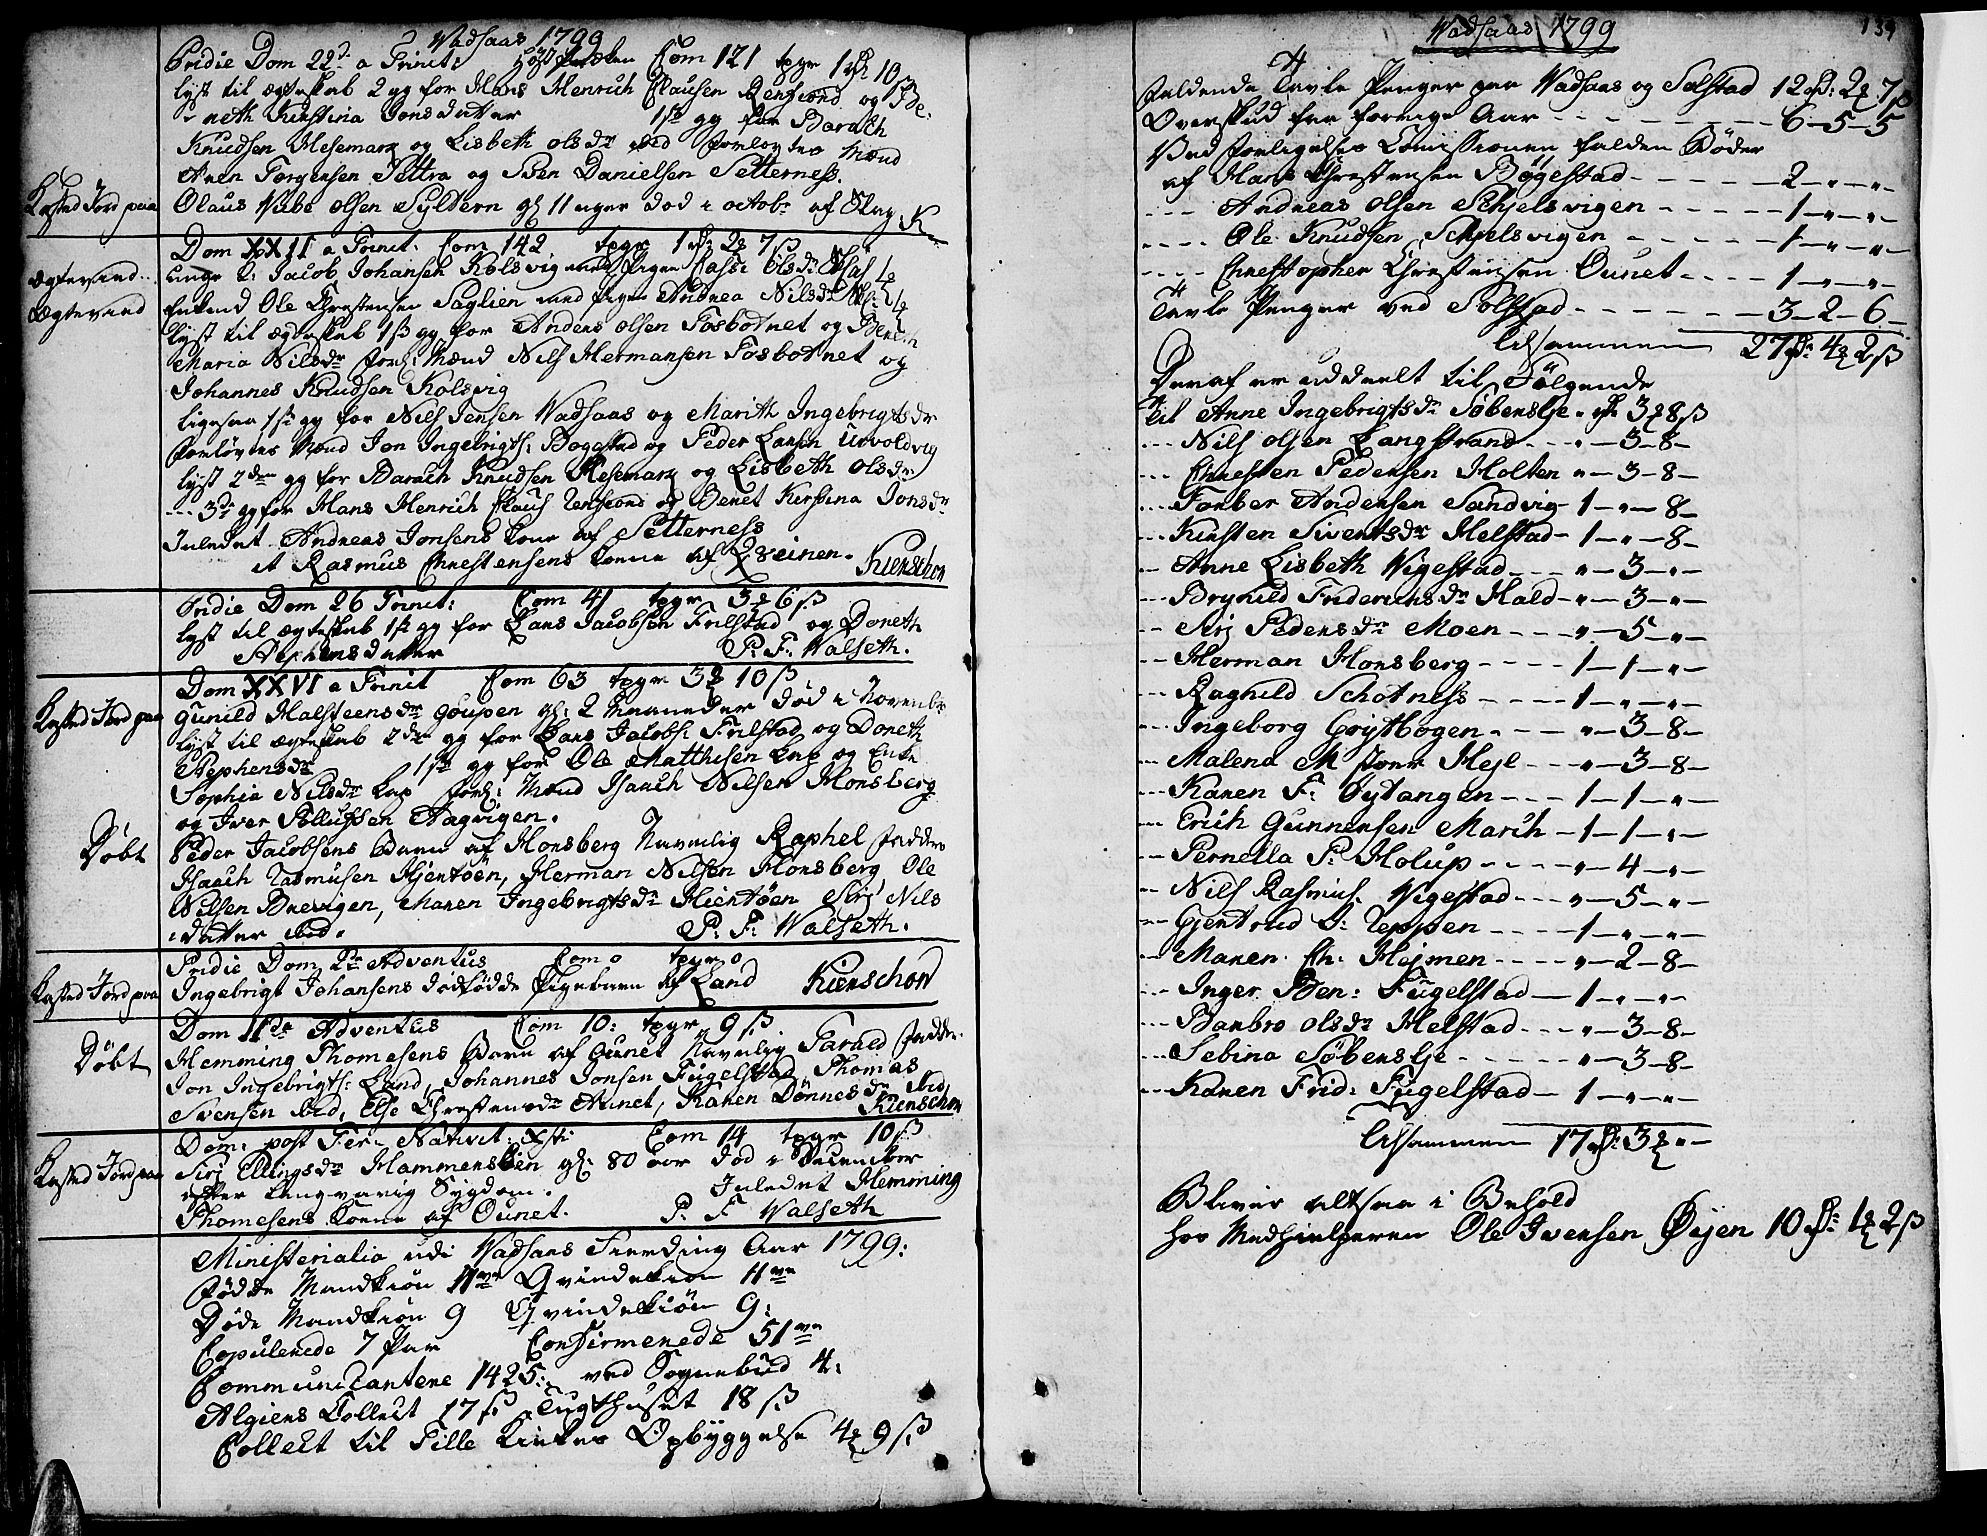 Vadsaas 1799
Pridie Dom 22d a Trinit: Com 121 tpgr 10 ß
lyst til ægteskab 2 gg for Hans Henrich Clausen og Be
neth Kirstina Jonsdatter 1ste gg for Barach
Knudsen Hesemarg og Lisbeth olsdr ibid forlovtes Mænd
Aren Torgersen Settra og Sven Danielsen Setterness.
Kasted Jord paa Olaus Vibe olsen Syldern gl 11 uger død i octobr af Slag K
Dom XXII a Trinit: Com 142 tpgr 1 2 7 ß
ægtevied unge k: Jacob Johansen Kolsvig med Pigen olsdr
Ægtevied Enkemd Ole Christensen Saglien med Pigen Andrea Nilsdr
lyst til ægteskab 1ste gg for Anders olsen Fosbotnet og Bereth
Maria Nilsdr forl: Mænd Nils Hermansen Fosbotnet og
Johannes Knudsen Kolsvig
ligesaa 1ste gg for Nils Jensen Vadsaas og Marith Ingebrigtsdr
Forlovtes Mænd Jon Ingebrigts: Bogstad og Peder Larsen
lyst 2den gg for Barach Knudsen Resemarg og Lisbeth olsdr
--- 3die gg for Hans Henrich Claus og Benet Kirstina Jonsdr
Inledet Andreas Jonsens kone af Setterness
it Rasmus Christensens kone af Kierschou
Pridie Dom 26 Trinit: Com 41 tpgr 3 6 ß
lyst til ægteskab 1ste gg for Lars Jacobsen Frilstad og Doneth
Stephensdatter P. F. Walseth.
Dom XXVI a Trinit Com 63 tpgr 3 10 ß
Kasted Jord paa Gunild Halsteensdr Goupen gl: 2 Maaneder død i Novenbr
lyst til ægteskab 2den gg for Lars Jacobs: Frilstad og Doneth
Stephensdr 1ste gg for Ole Matthisen Lap og Enke
Sophia Nilsdr Lap forl: Mænd Isaach Nilsen Honsberg
og Iver Pollussen Aagvigen.
Døbt Peder Jacobsens Barn af Honsberg Navnlig Raphel Faddere
Isaach Rasmusen Hjertøen, Herman Nilsen Honsberg, Ole
Nilsen Brevigen, Maren Ingebrigtsdr Hiertøen Siri Nils
datter ibid. P. F. Walseth.
Pridie Dom 2de Adventus Com 0 tpgr 0
Kasted Jord paa Ingebrigt Johansens dødfødde Pigebarn af Land Kierschou
Dom IIda Adventus Com 10: tpgr 9 ß
Døbt Hemming Thomesens Barn af Ounet Navnlig Faddr.
Jon Ingebrigts: Land, Johannes Jonsen Fugelstad, Thomas
Svensen ibid, Else Christensdr Aunet, Karen Dønnesdr ibid
Kierschou
Dom: post Fer: Nativit: Xsti Com 14 tpgr 10 ß
Kasted Jord paa Siri Ellingsdr Hammersøen gl: 80 aar død i December
efter langvarig Sygdom. Inledet Hemming
Thomesens kone af Ounet. P. F. Walseth
Ministerialia udi Vadsaas Fierding Aar 1799:
Fødde Mandkiøn 11ve Qvindekiøn 11ve
Døde Mandkiøn 9 Qvindekiøn 9:
Copulerede 7 Par Confirmerede 51ve
Communicantere 1425: ved Sognebud 4:
Algiers Collect 17 ß Tugthuset 18 ß
Collect til Tille Kirkes Opbyggelse 4 9 ß
Vadsaas 1799
139
Faldende Tavle Penger paa Vadsaas og Solstad 12 2 7 ß
Overskud fra forrige Aar ---- 6-5-5
Ved Forligelses Comissionen falden Bøder
af Hans Christensen Bøgestad --- 2-"-"-
--- Andreas olsen Schjelsvigen --- 1-"-"-
--- Ole Knudsen Schjelsvigen --- 1-"-"-
--- Christopher Christensen Ounet --- 1-"-"-
Tavle Penger ved Solstad --- 3-2-6-
Tilsammen 27 4 2 ß
Deraf er uddeelt til Følgende
Til Anne Ingebrigtsdr Søbenslje " 3 8 ß
--- Nils olsen Langstrand --- " - 3-8-
--- Christen Pedersen Holten " - 3-8-
--- Forber Andersen Sandvig - 1-"-8-
--- Kirsten Siventsdr Helstad - 1-"-8-
-- Anne Lisbeth Vigestad --- " - 3-"-
-- Brynild Friderichsdr Hald - " - 3-"-
-- Siri Pedersdr Moen --- " - 5-"-
-- Herman Honsberg --- 1-1-"-
--- Ragnild Schotness --- 1-"-"-
--- Ingeborg Grytbogen --- " - 3-8-
--- Malena M Hejl --- " - 3-8-
--- Karen F: Øytangen --- 1-1-"-
--- Erich Gunnersen Marih - 1-1-"-
--- Pernella P: Holup --- " - 4-"-
--- Nils Rasmus: Vigestad --- " - 5-"-
--- Gjertrud D: Reppen --- 1-"-"-
--- Maren Ch: Hejmen --- " - 2-8-
--- Inger Sven: Fugelstad - 1-"-"-
--- Banbro olsdr Helstad --- " - 3-8-
--- Sebina Søbenslje --- " - 3-8-
--- Karen Frid: Fugelstad - 1-"-"-
Tilsammen 17 3 "-
Bliver altsaa i Behold
hos Medhielperen Ole Iversen Øijen 10 1 2 ß